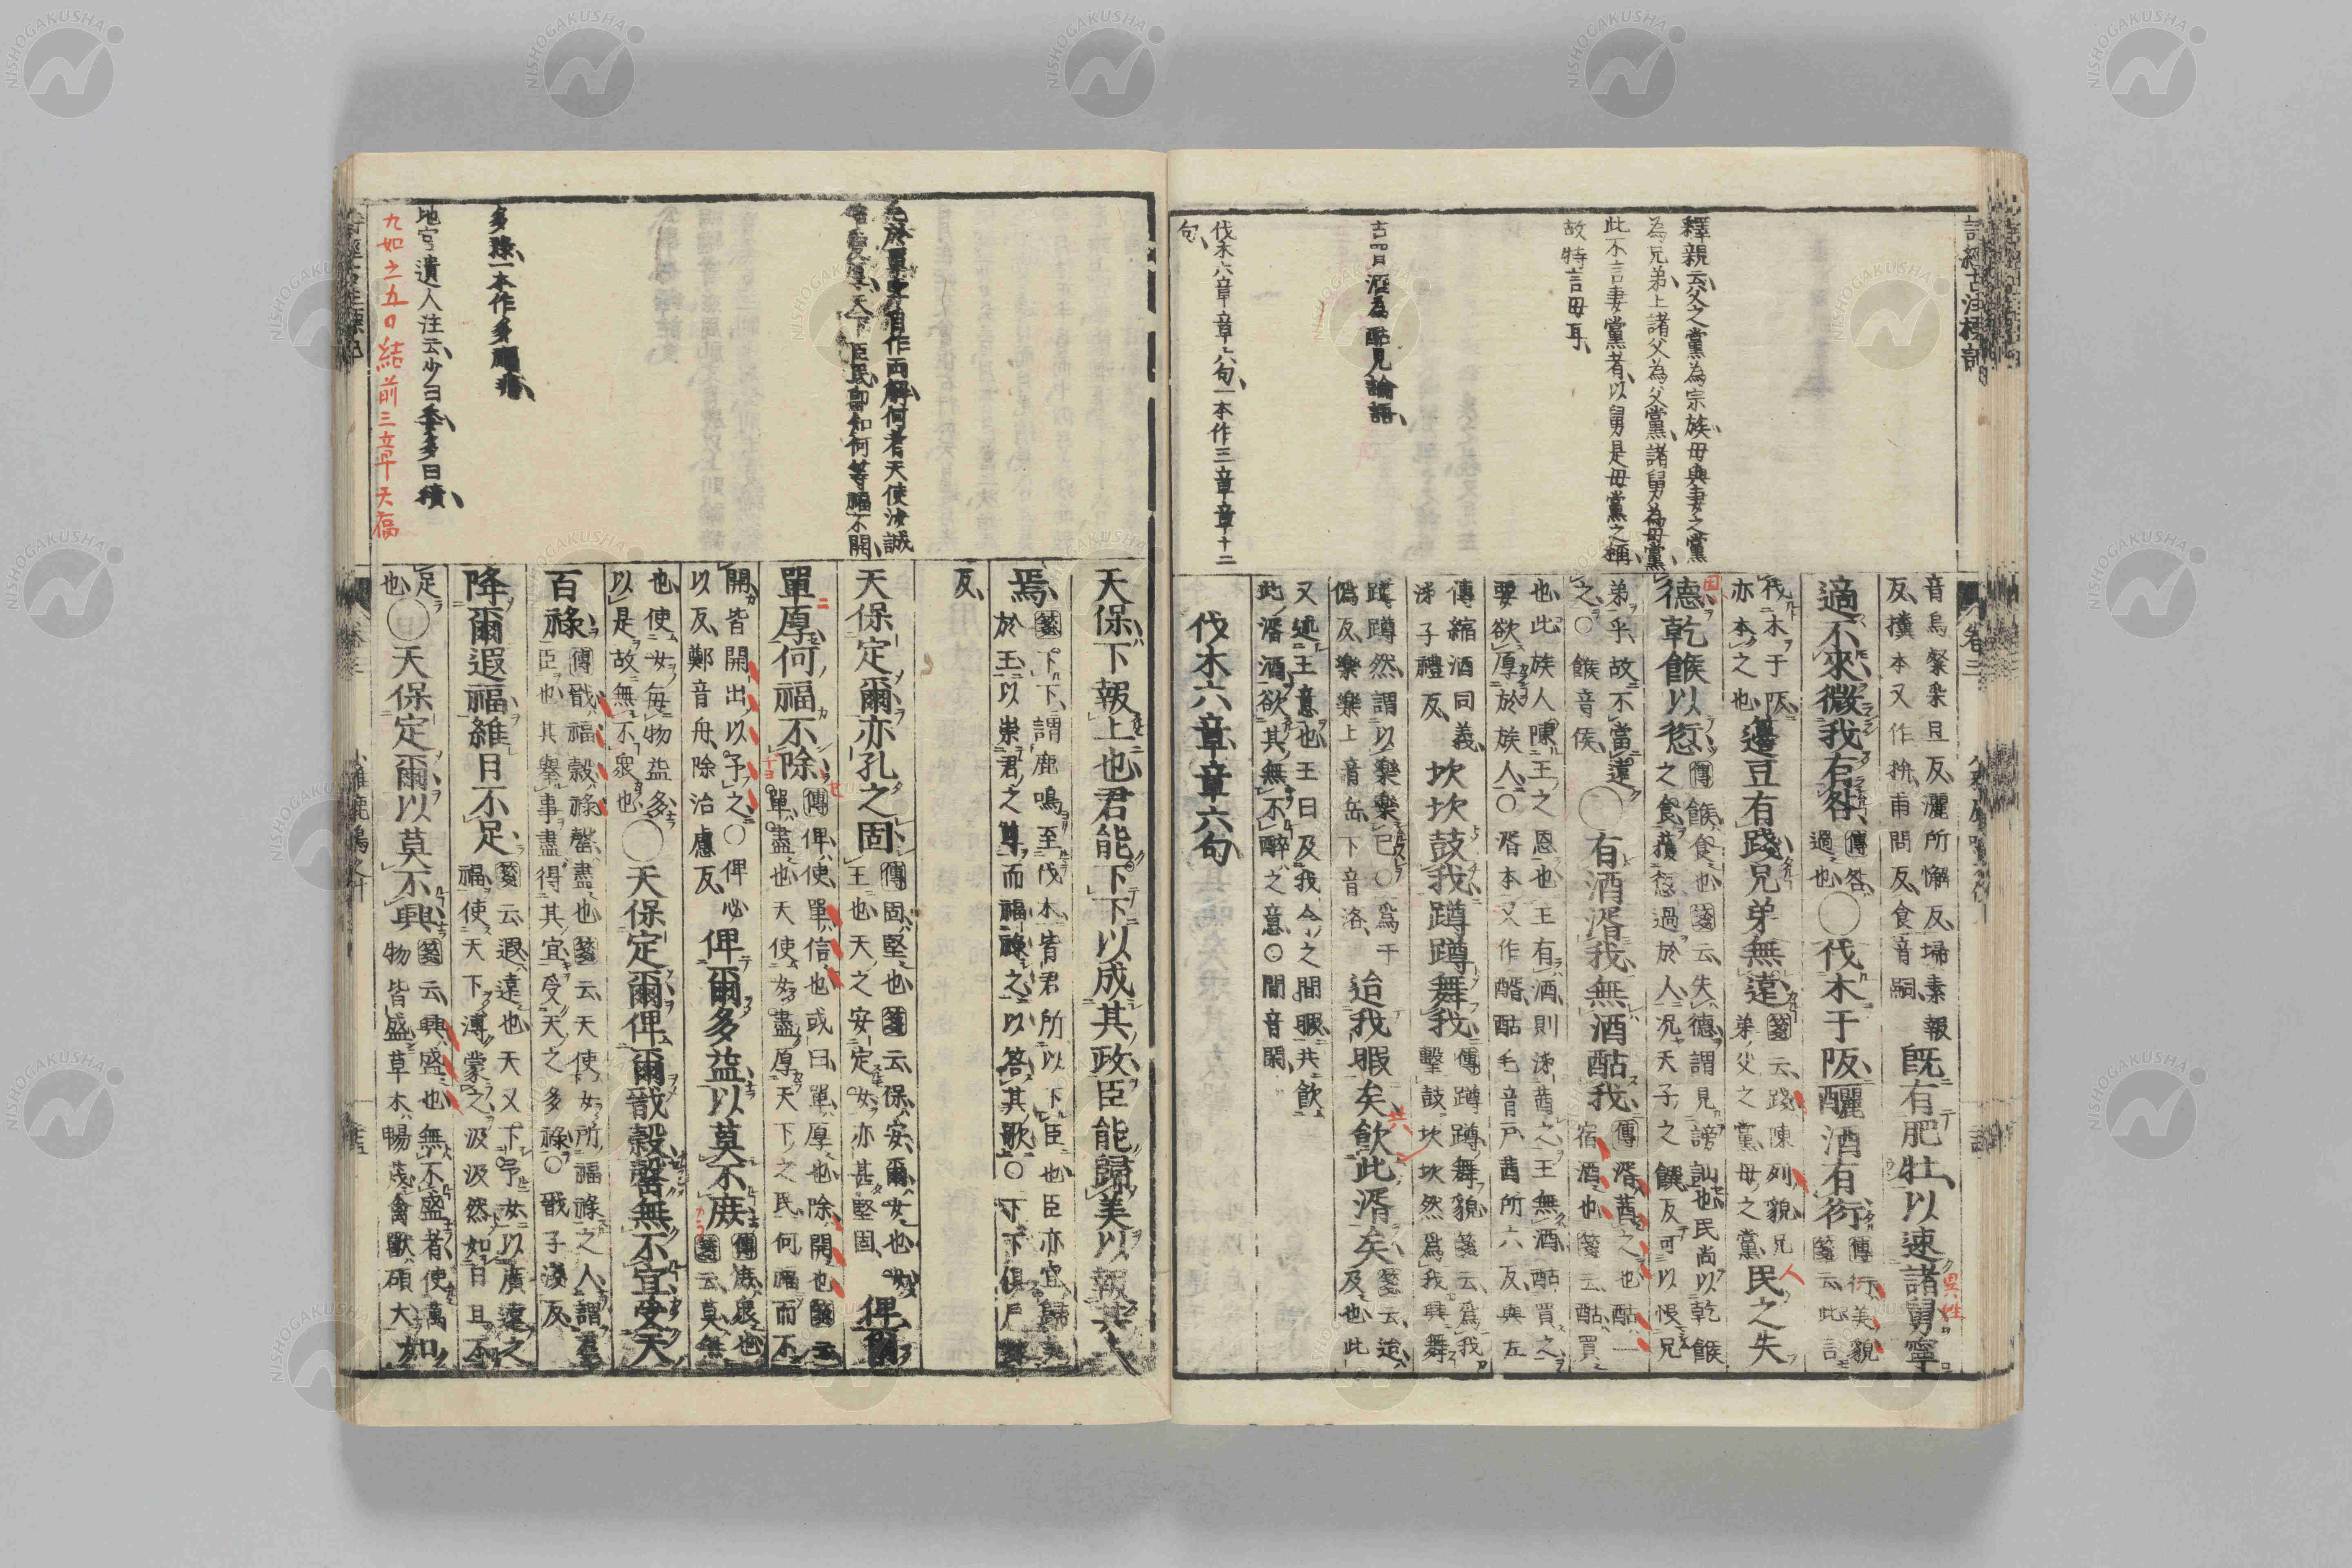 釋親云父之黨為宗族母與妻之黨
為兄弟上諸父為父黨諸舅為母黨
此不言妻黨者以舅是母黨之稱
故特言母耳
酒為酤見論語
伐木六章章六句一本作三章章十二
句
音烏粲采旦反灑所懈反埽素報
反擐本又作拚甫問反食音嗣
既有肥牡以速諸舅寧
適不來微我有咎傳咎
過也○伐木于阪釃酒有衍傳衍美貌
箋云此言
伐木于阪
亦本之也籩豆有踐兄弟無遠箋云踐陳列貌兄
弟父之黨母之黨民之失
德乾餱以愆傳餱食也箋云失德謂見謗訕也民尚以乾餱
之食獲愆過於人況天子之饌反可以恨兄
弟乎故不當遠
之○餱音侯○有酒湑我無酒酤我傳湑茜之也酤一
宿酒也箋云酤買
也此族人陳王之恩也王有酒則泲茜之王無酒酤買之
要欲厚於族人○湑本又作醑酤毛音戶茜所六反與左
傳縮酒同義
泲子禮反坎坎鼓我蹲蹲舞我傳蹲蹲舞貌箋云爲我
擊鼓坎坎然爲我興舞
蹲蹲然謂以樂樂己○爲于
僞反樂樂上音岳下音洛迨我暇矣飲此湑矣箋云迨
及也此
又述王意也王曰及我今之間暇共飲
此湑酒欲其無不醉之意○閒音閑
伐木六章章六句
共
異姓
人
天使汝誠
天下臣民
多祿一本作多福
地官遺人注云少曰委多曰積
九如之五
結前三章天福
天保下報上也君能下下以成其政臣能歸美以報其上
焉箋下下謂鹿鳴至伐木皆君所以下臣也臣亦宜歸美
於王以崇君之尊而福祿之以答其歌○下下俱戶嫁
反
天保定爾亦孔之固傳固堅也箋云保安爾女也女
王也天之安定女亦甚堅固俾爾
單厚何福不除傳俾使單信也或曰單厚也除開也箋云
單盡也天使女盡厚天下之民何福而不
開皆開出以予之○俾必
以反鄭音丹除治慮反俾爾多益以莫不庶傳庶衆也
箋云莫無
也使女每物益多
以是故無不衆也○天保定爾俾爾戩穀罄無不宜受天
百祿傳戩福穀祿罄盡也箋云天使女所福祿之人謂羣
臣也其舉事盡得其宜受天之多祿○戩子淺反
降爾遐福維日不足箋云遐遠也天又下予女以廣遠之
福使天下溥蒙之汲汲然如日且不
足
也○天保定爾以莫不興箋云興盛也無不盛者使萬
物皆盛草木暢茂禽獸碩大如